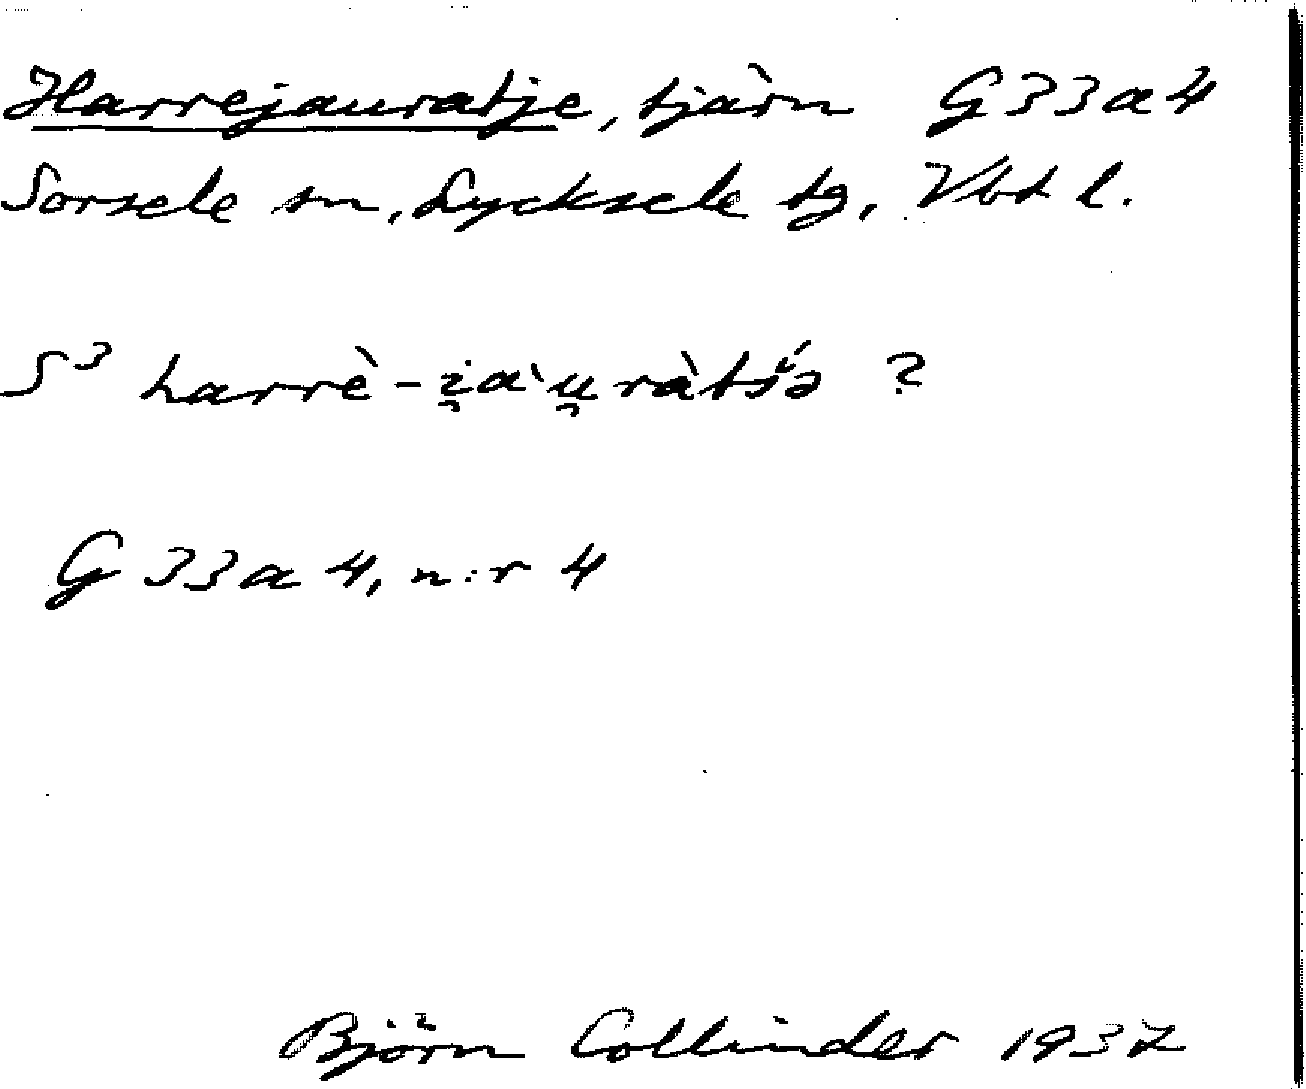 Harrejauratje, tjärn G33a4
Sorsele sn, Lycksele tg, Vbt l.
S³ harrè-i̯a`u̯ràtśə ?
G 33a 4, n:r 4
Björn Collinder 1937